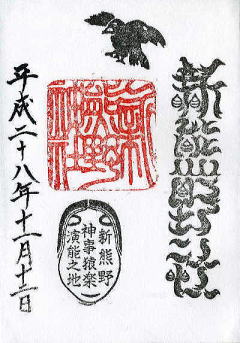 新熊野神社
新熊野神社
新熊野
神事猿楽
演能之地
平成二十八年十一月十二日